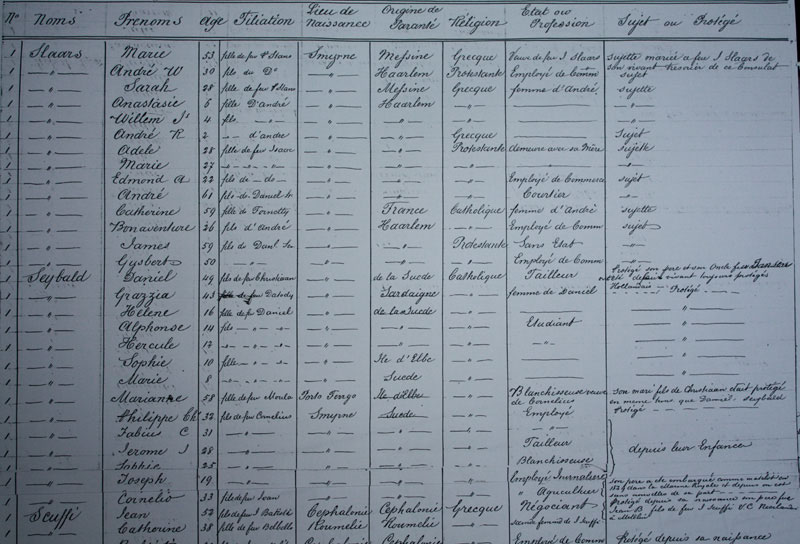 No Noms Prenoms Age Filiation Lieu de Naissance Origine de Parenté Réligion Etat ou Profession Sujet ou Protégé
1 Slaars Marie 53 fille de feu Smyrne Messine Grecque Veuve de feu J Slaars sujette mariée a feu J Slaars de
son vivant Tresorier de ce Consulat
1 —"— André W 30 fils du Do —"— Haarlem Protestante Employé de Comm sujet
1 —"— Sarah 28 fille de feu —"— Messine Grecque femme d'André sujette
1 —"— Anastasie 6 fille D'andré —"— Haarlem —"— —"—
1 —"— Willem 4 fils —"— —"— —"— —"— —"—
1 —"— André R 2 —"— d'andre —"— —"— Grecque Sujet
1 —"— Adele 28 fille de feu —"— —"— Protestante demeure avec sa Mère Sujette
1 —"— Marie 27 —"— —"— —"— —"— —"— —"—
1 —"— Edmond A 22 fils de —do— —"— —"— —"— Employé de Commerce sujet
1 —"— André 61 fils de Daniel —"— —"— —"— Courtier —"—
1 —"— Catherine 59 fille de —"— France Catholique femme d'André sujette
1 —"— Bonaventure 26 fils d'André —"— Haarlem —"— Employé de Comm sujet
1 —"— James 59 fils de —"— —"— Protestante Sans Etat —"—
1 —"— Gysbert 50 —"— —"— —"— —"— Employé de Comm —"—
1 Seybald Daniel 49 fils de feu Christiaan —"— de la Suede Catholique Tailleur Protégé son pere et son Oncle feu
depuis vivant toujours protégés
1 —"— Grazzia 43 fille de feu —"— Sardaigne —"— femme de Daniel Hollandais — Protégé
1 —"— Hélène 16 fille de feu Daniel —"— de la Suede —"— —"—
1 —"— Alphonse 14 fils —"— —"— —"— —"— Etudiant —"—
1 —"— Hercule 12 —"— —"— —"— —"— —"— —"—
1 —"— Sophie 10 fille —"— —"— Ile d'Elbe —"— —"—
1 —"— Marie 8 —"— —"— Suede —"— —"—
1 —"— Marianne 58 fille de feu Porto Ferrgo Ile d'Elbe —"— Blanchisseuse veuve de Cornelius son mari fils de Christiaan etait protégé
en meme tems que Daniel Seybald
1 —"— Philippe 32 fils de feu Cornelius Smyrne Suède —"— Employé Protégé
1 —"— Fabius C 31 —"— —"— —"— —"—
1 —"— Jerome J 28 —"— —"— —"— —"— Tailleur depuis leur Enfance
1 —"— Sophie 25 —"— —"— —"— —"— Blanchisseuse
1 —"— Joseph 19 —"— —"— —"— —"— Employé Journalière son pere a été embarqué comme matelot en
dans la Marine Royale et depuis on est
1 —"— Cornelio 33 fils de feu Jean —"— —"— —"— " Agriculteur sans nouvelles de sa part
1 Scuffi Jean 52 fils de feu J Cephalonie Cephalonie Grecque Négociant Protégé depuis sa naissance
fils de feu J Scuffi V.C
1 —"— Catherine 38 fille de Roumelie Roumelie —"— femme de
Cephalonie Employé de Comm Protégé depuis sa naissance